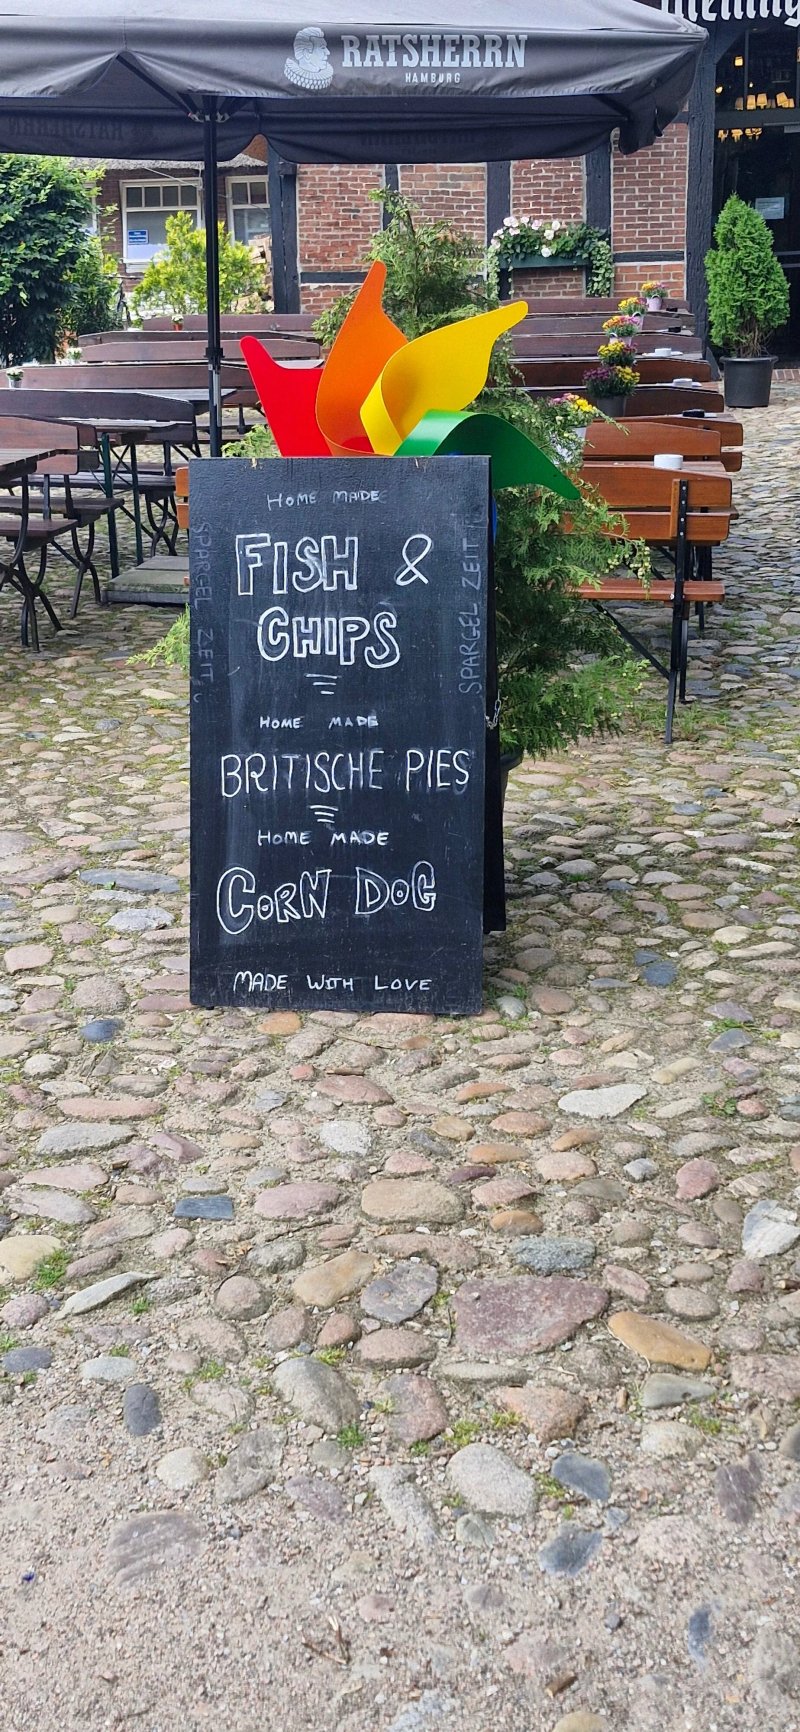 RATSHERRN
HAMBURG
HOME MADE
FISH &
CHIPS
HOME MADE
BRITISCHE PIES
HOME MADE
CORN DOG
MADE WITH LOVE
SPARGEL ZEIT
SPARGEL ZEIT